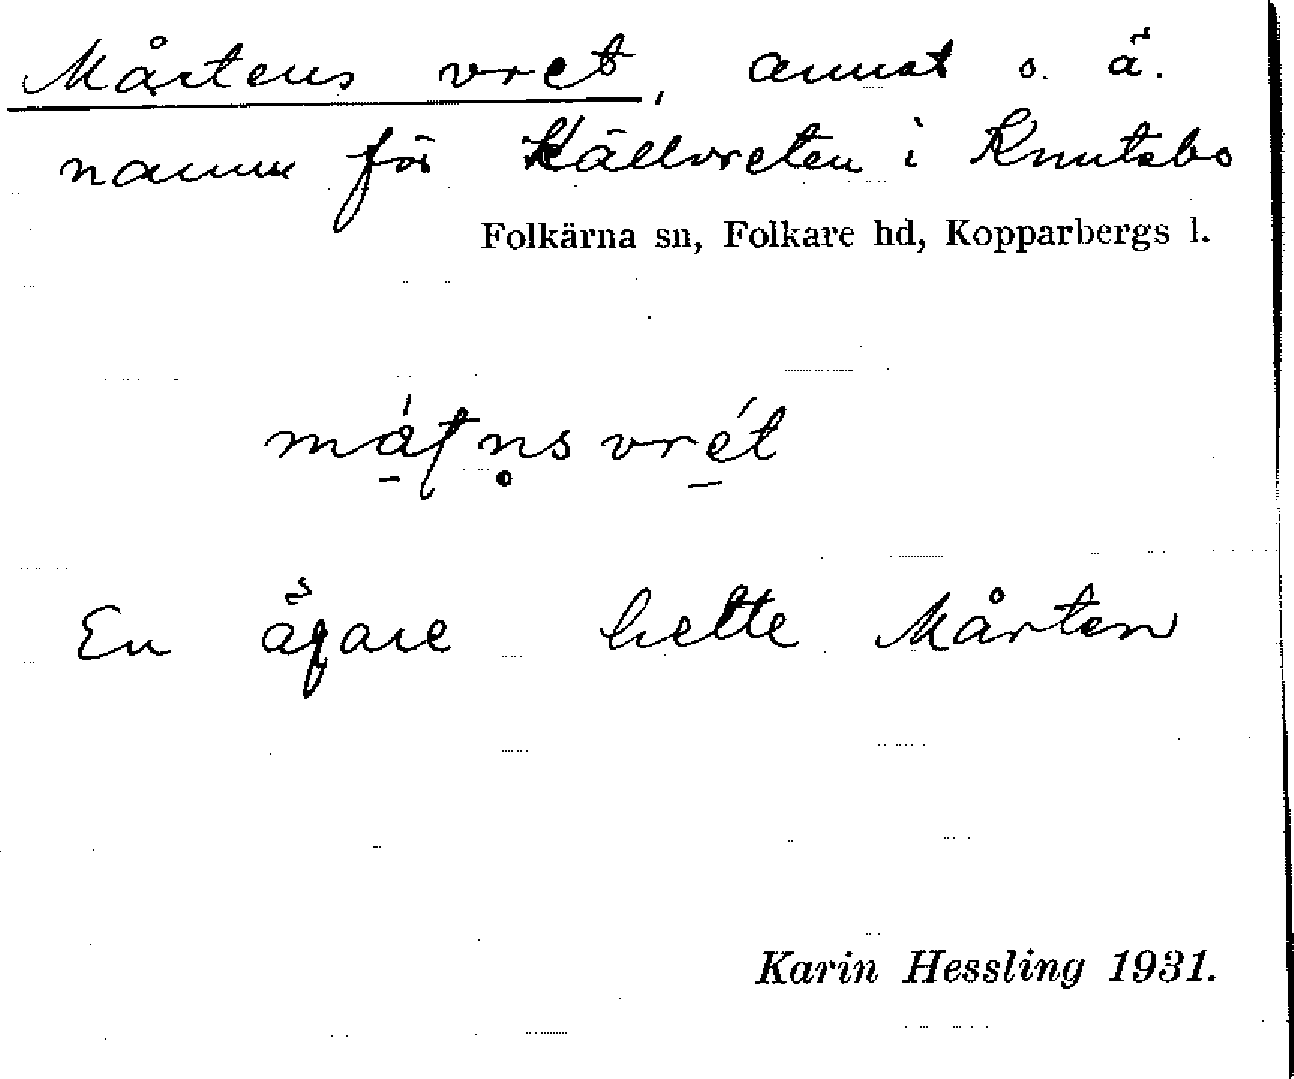 Mårtens vret, annat o. ä.
namn för Källvreten i Knutsbo
Folkärna sn, Folkare hd, Kopparbergs l.
En ägare hette Mårten
Karin Hessling 1931.